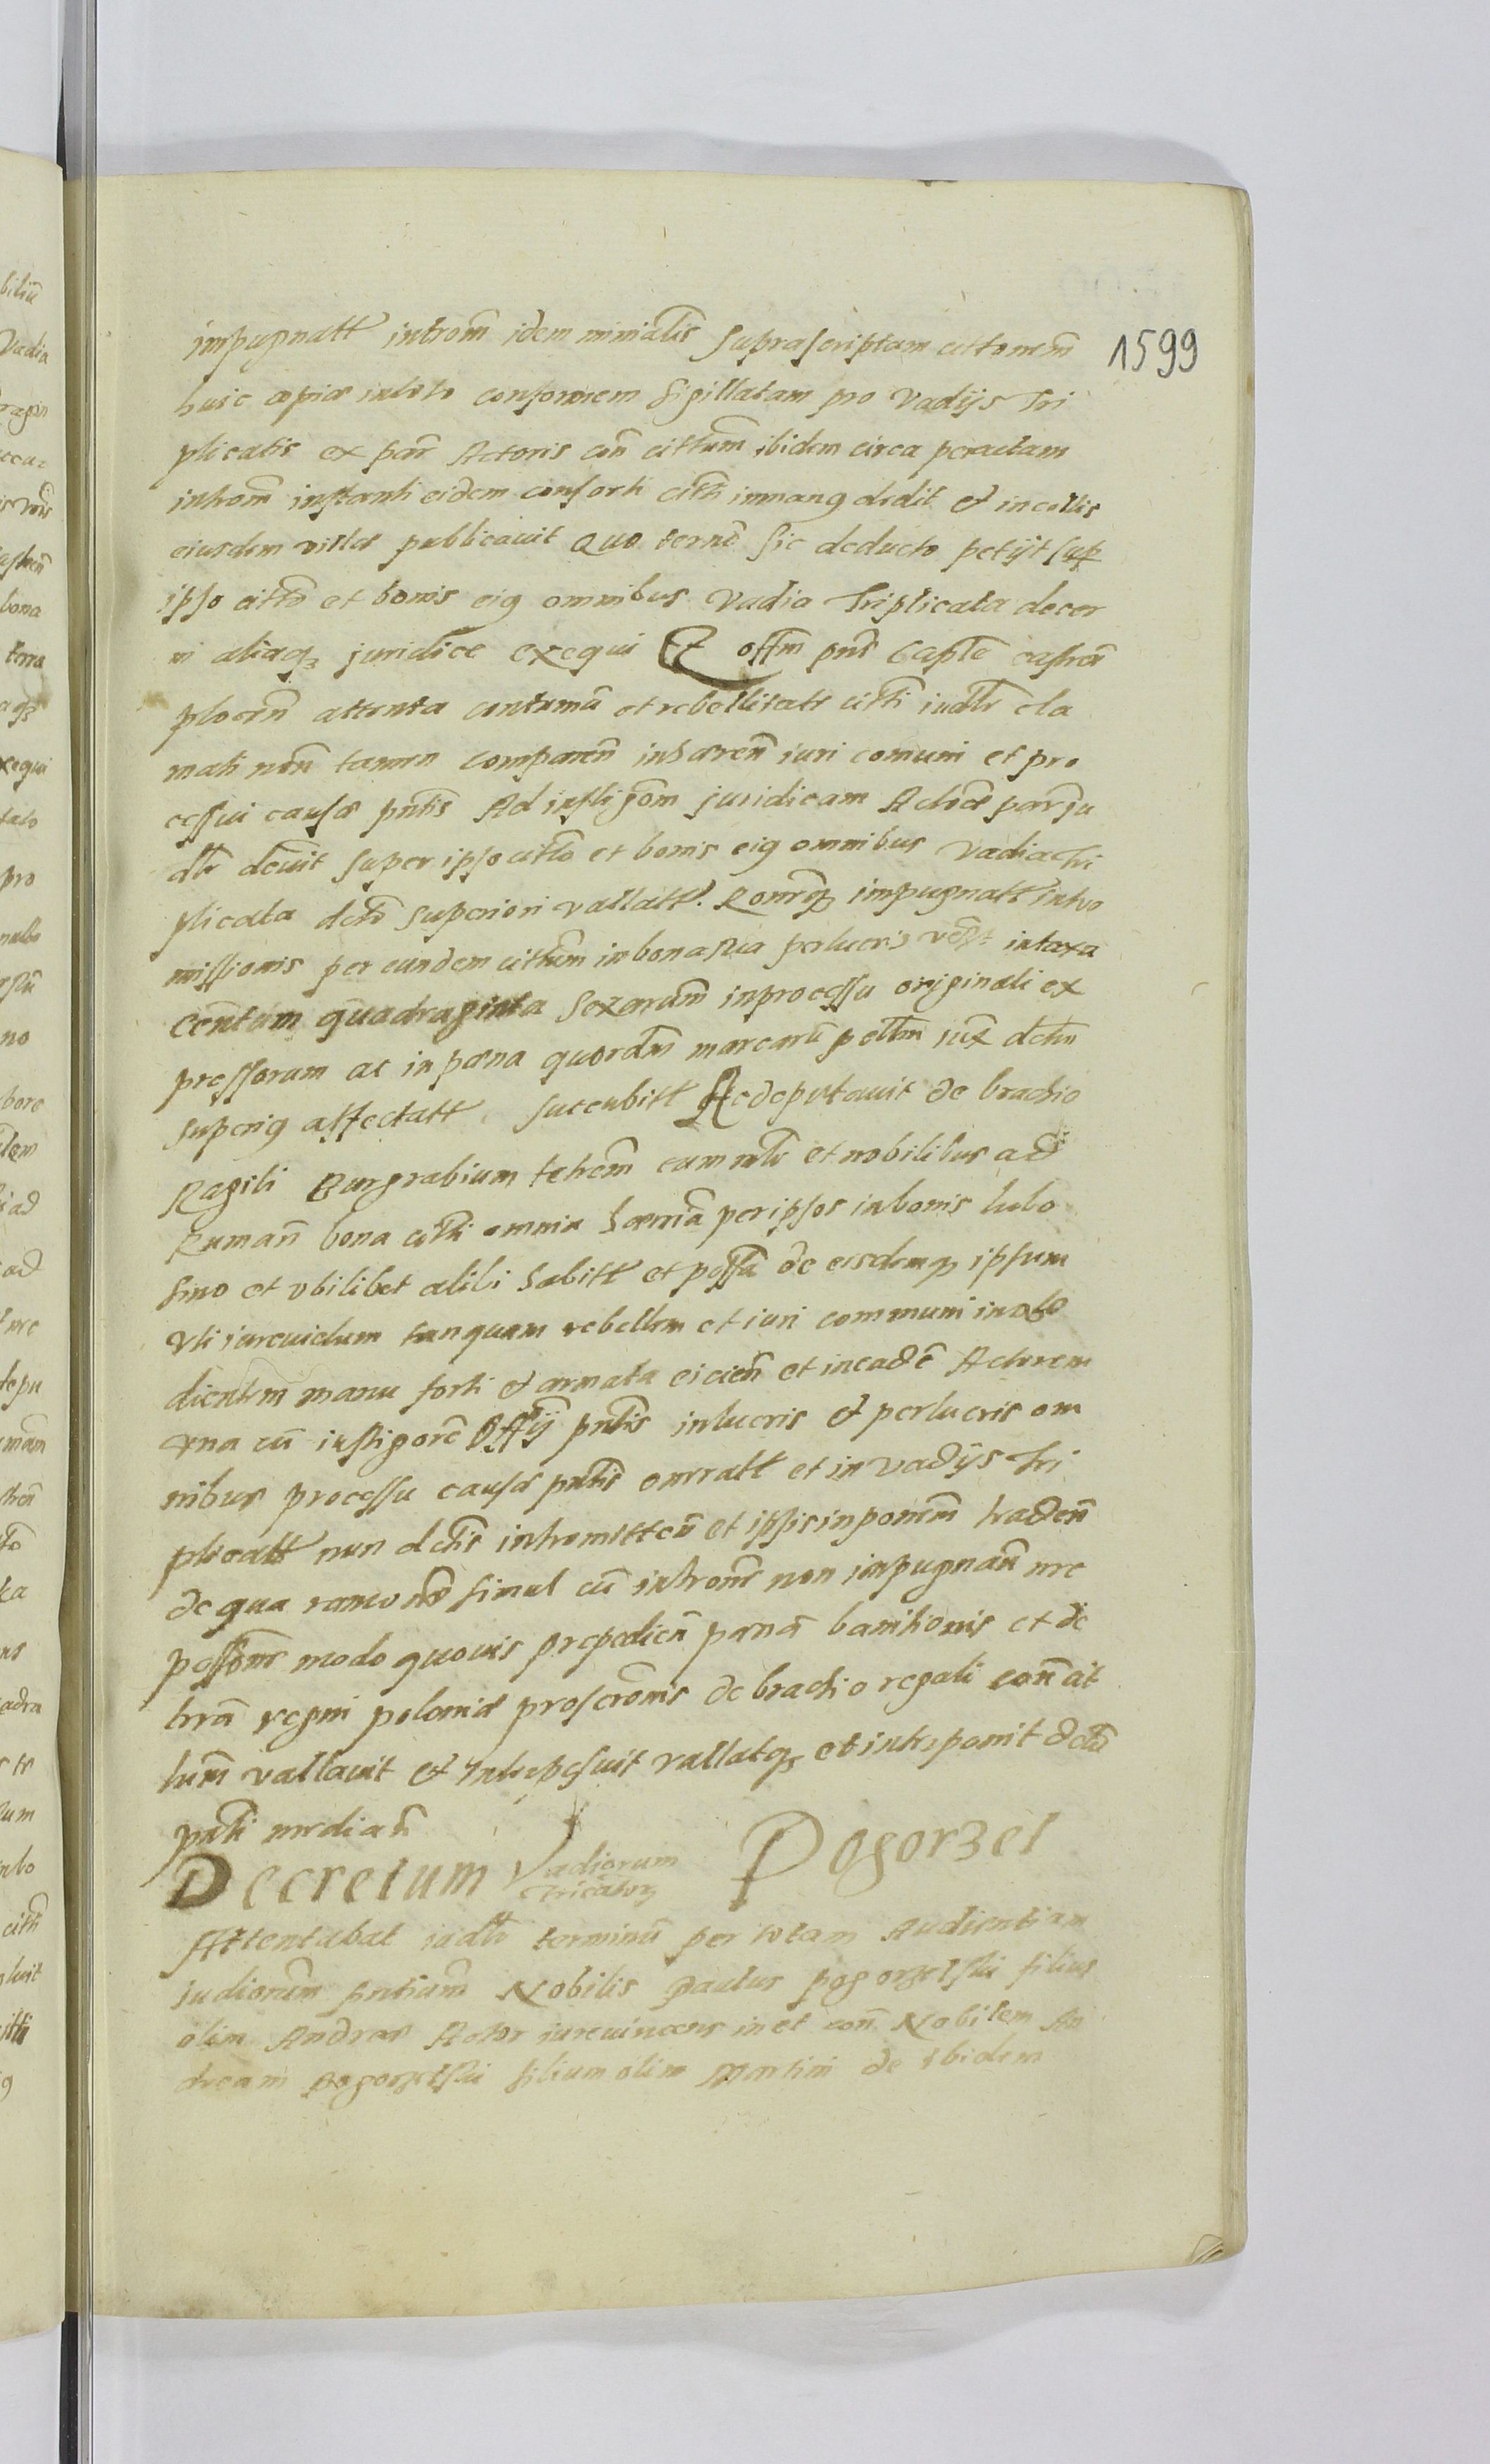 1599
impugnatt introm̃ idem minialis̃ suprascriptam cittonem̃
huic copiæ insto conformem sigillatam pro Vadijs Tri
plicatis ex par̃ Actoris coñ cittum̃ ibidem circa peractam
introm̃ instanti eidem consorti citti in manq dedit et in collis
eiusdem villæ publicauit Quo termõ sic deducto petijt sup
ipso citto et bonis eiq omnibus Vadia Triplicata decer
ni aliaqz juridice exequi Et offm̃ pns̃ Captle castreñ
plocen̄ attenta contumã et rebellitate citti iudlr cla
mati non tamen comparen̄ inhæren̄ iuri comuni et pro
cessui causæ pntis Ad instigom̃ juridicam Actoreæ par ju
dlr deuit super ipso citto et bonis eiq omnibus Vadia Tri
plicata dcto superiori vallatt. impugnatt intro
missionis per eundem cittum in bona sua per lucris in taxa
Centum quadraginta sexagarum in processu originali ex
pressorum ac in poena quordm marcarũ iux dctm
superiq affectatt succubitt Ac deputauit de brachio
Ragili Burgrabium cum mlr et nobilibus ad
bona citti omnia hærnã per ipsos in bonis lubo
sino et vbilibet alibi habitt et possã de eisdemqz ipsum
Vti iureuictum tanquam rebellem et iuri communi inobe
dientem manu forti et armata eicien̄ et in eadẽ Actorem
vna cũ instigorẽ Offij pntis in lucris et perlucris om
nibus processu causæ pntis enrratt et in vadijs Tri
plicatt nun dctis intromitten̄ et ipsis in possnem traden̄
de qua ramõne simul cũ introne non impugnan̄ nec
possõne modo quouis prepedien̄ poenã banitionis et de
terrã regni poloniæ proscronis de brachio regali con̄ cit
tum̄ vallauit et Interposuit vallatqz et interponit dcto
pnti median̄
Decretum Vadiorum Pogorzel
Tricatorz
Attentabat iudlr terminũ per totam Audientiam
iudiorum pntium Nobilis Paulus pogorzelski filius
olim Andreæ Actor iureuincens in et con̄ Nobilem An
dream Pogorzelski filium olim Martini de Ibidem